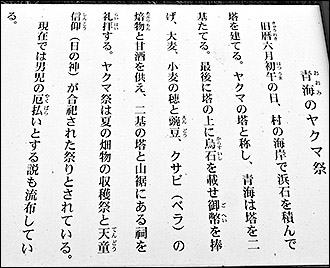 青海のヤクマ祭
旧暦六月初午の日、村の海岸で浜石を積んで
塔を建てる。ヤクマの塔と称し、青海は塔を二
基たてる。最後に塔の上に烏石を載せ御幣を捧
げ、大麦、小麦の穂と豌豆、クサビ（ベラ）の
焙物と甘酒を供え、二基の塔と山裾にある祠を
礼拝する。ヤクマ祭は夏の畑物の収穫祭と天童
信仰（日の神）が合祀された祭りとされている。
現在では男児の厄払いとする説も流布してい
る。